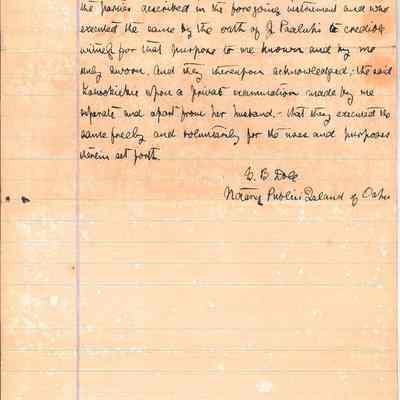 the parties described in the foregoing instrument and who
executed the same by the oath of J Paaluhi to credible
witness for that purpose to me known and by me
duly sworn. And they thereupon acknowledged, the said
upon a private examination made by me
separate and apart from her husband, - that they executed the
same freely and voluntarily for the uses and purposes
therein set forth.
S. B. Dole
Notary Public Island of Oahu